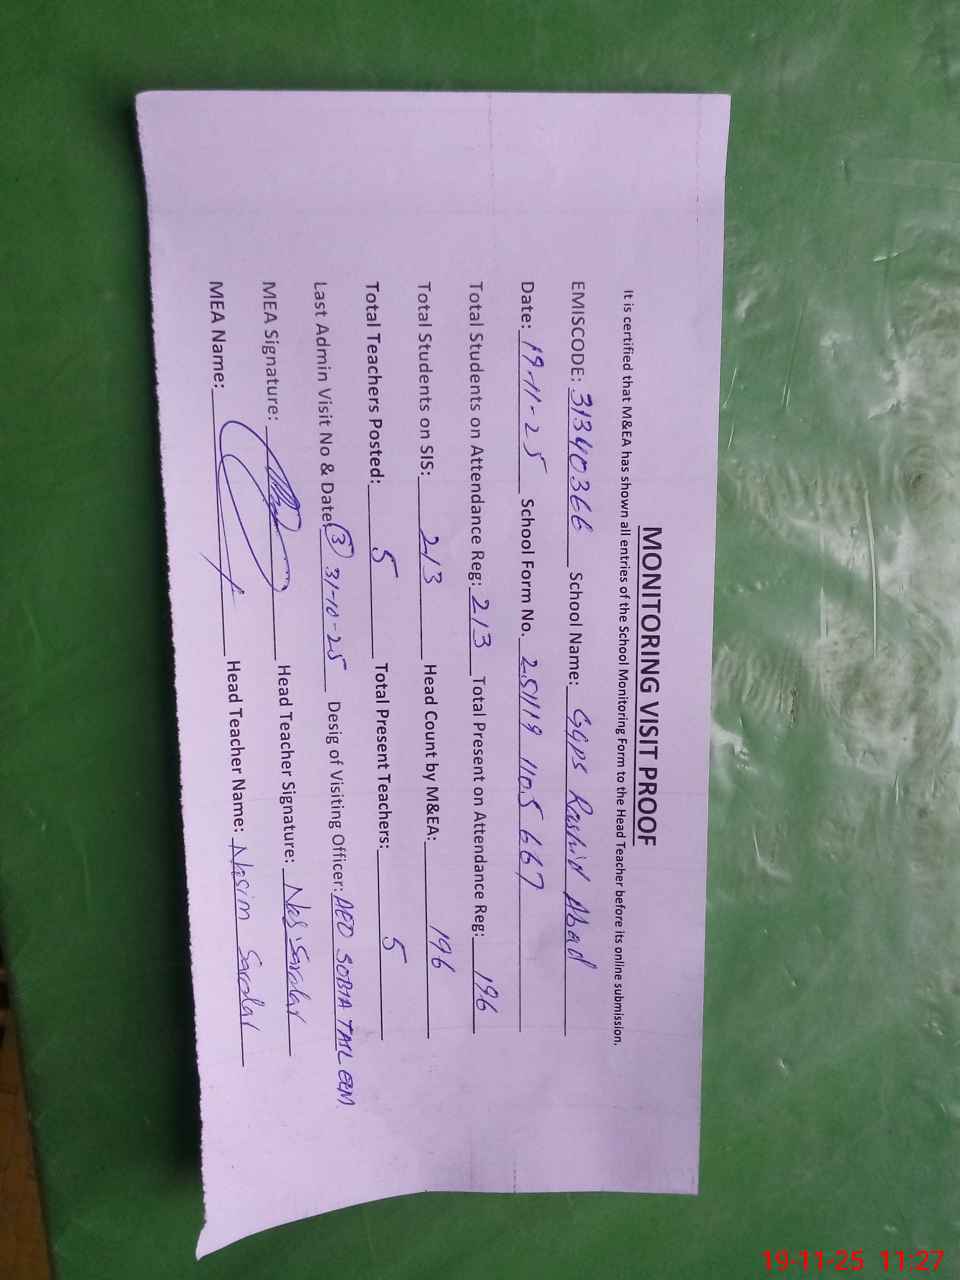 MONITORING VISIT PROOF
It is certified that M&EA has shown all entries of the School Monitoring Form to the Head Teacher before its online submission.
EMISCODE: 31340366 School Name: GGPS Rashid Abad
Date: 19-11-25 School Form No. 251119 1105667
Total Students on Attendance Reg: 213 Total Present on Attendance Reg: 196
Total Students on SIS: 213 Head Count by M&EA: 196
Total Teachers Posted: 5 Total Present Teachers: 5
Last Admin Visit No & Date: 3 31-10-25 Desig of Visiting Officer: AEO SOBIA
MEA Signature: Head Teacher Signature:
MEA Name: Head Teacher Name: Nasim Sardar
19-11-25 11:27